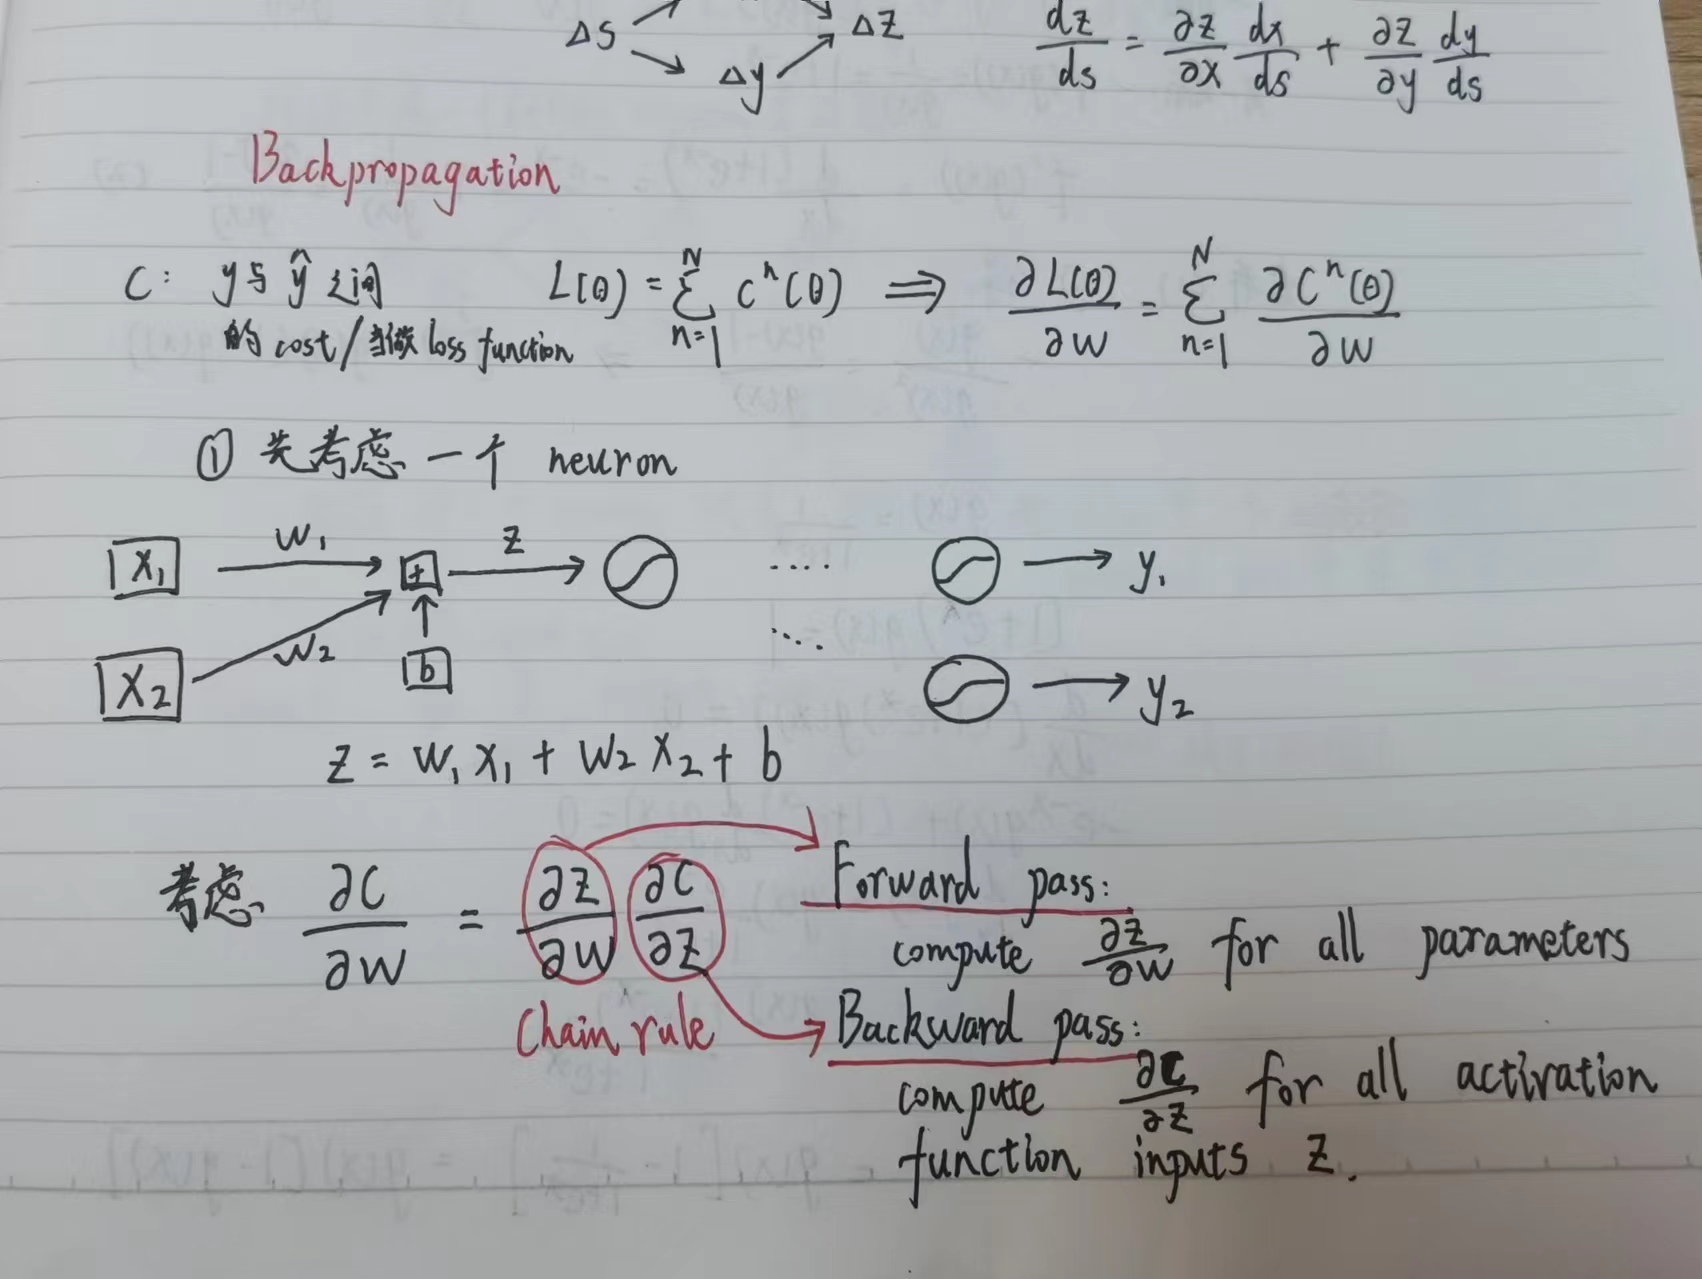 Δs Δy Δz dz/ds = ∂z/∂x dx/ds + ∂z/∂y dy/ds
Backpropagation
C: y与ŷ之间
的cost/当做loss function
L(θ) = Σ_{n=1}^{N} C^n(θ) ⇒ ∂L(θ)/∂w = Σ_{n=1}^{N} ∂C^n(θ)/∂w
① 先考虑一个 neuron
x₁ w₁ + z .... → y₁
x₂ w₂ b ... → y₂
z = w₁x₁ + w₂x₂ + b
考虑 ∂C/∂w = ∂z/∂w ∂C/∂z
Chain rule
Forward pass:
compute ∂z/∂w for all parameters
Backward pass:
compute ∂C/∂z for all activation
function inputs z.